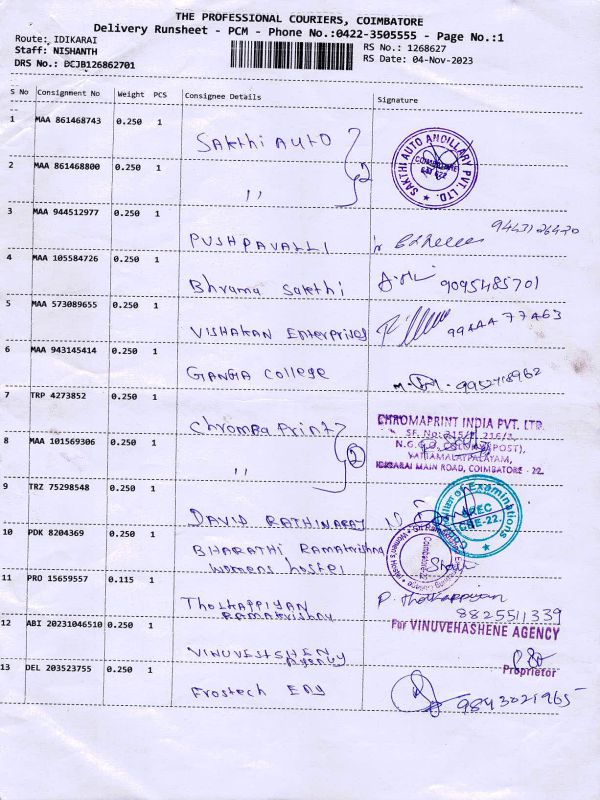 THE PROFESSIONAL COURIERS, COIMBATORE
Delivery Runsheet - PCM - Phone No.:0422-3505555 - Page No.:1
Route: IDIKARAI
RS No.: 1268627
Staff: NISHANTH
RS Date: 04-Nov-2023
DRS No.: BCJB126862701
S No Consignment No Weight PCS Consignee Details Signature
1 MAA 861468743 0.250 1 Sakthi Auto
SAKTHI AUTO ANCILLARY PVT. LTD.
COIMBATORE
2 MAA 861468800 0.250 1 ,, 2
3 MAA 944512977 0.250 1 PUSHPAVALLI
4 MAA 105584726 0.250 1 Bhrama Sakthi 9095485701
5 MAA 573089655 0.250 1 VISHAKAN Enterprises
6 MAA 943145414 0.250 1 GANGA College
7 TRP 4273852 0.250 1 Chroma Print
CHROMAPRINT INDIA PVT. LTD.
N.G.G.O. COLONY (POST),
VATTAMALAYPALAYAM,
IDIGARAI MAIN ROAD, COIMBATORE - 22.
8 MAA 101569306 0.250 1 ,, 2
9 TRZ 75298548 0.250 1 DAVID RATHINARAJ
Controller of Examinations
SREC
CBE-22.
10 PDK 8204369 0.250 1 BHARATHI Ramakrishna
womens hostel
11 PRO 15659557 0.115 1 Tholkappiyan
RAMAKRISHNA
P. Tholkappiyan
8825511339
12 ABI 20231046510 0.250 1 VINUVESHENY
Agency
For VINUVEHASHENE AGENCY
Proprietor
13 DEL 203523755 0.250 1 Frostech Eng 9843021965